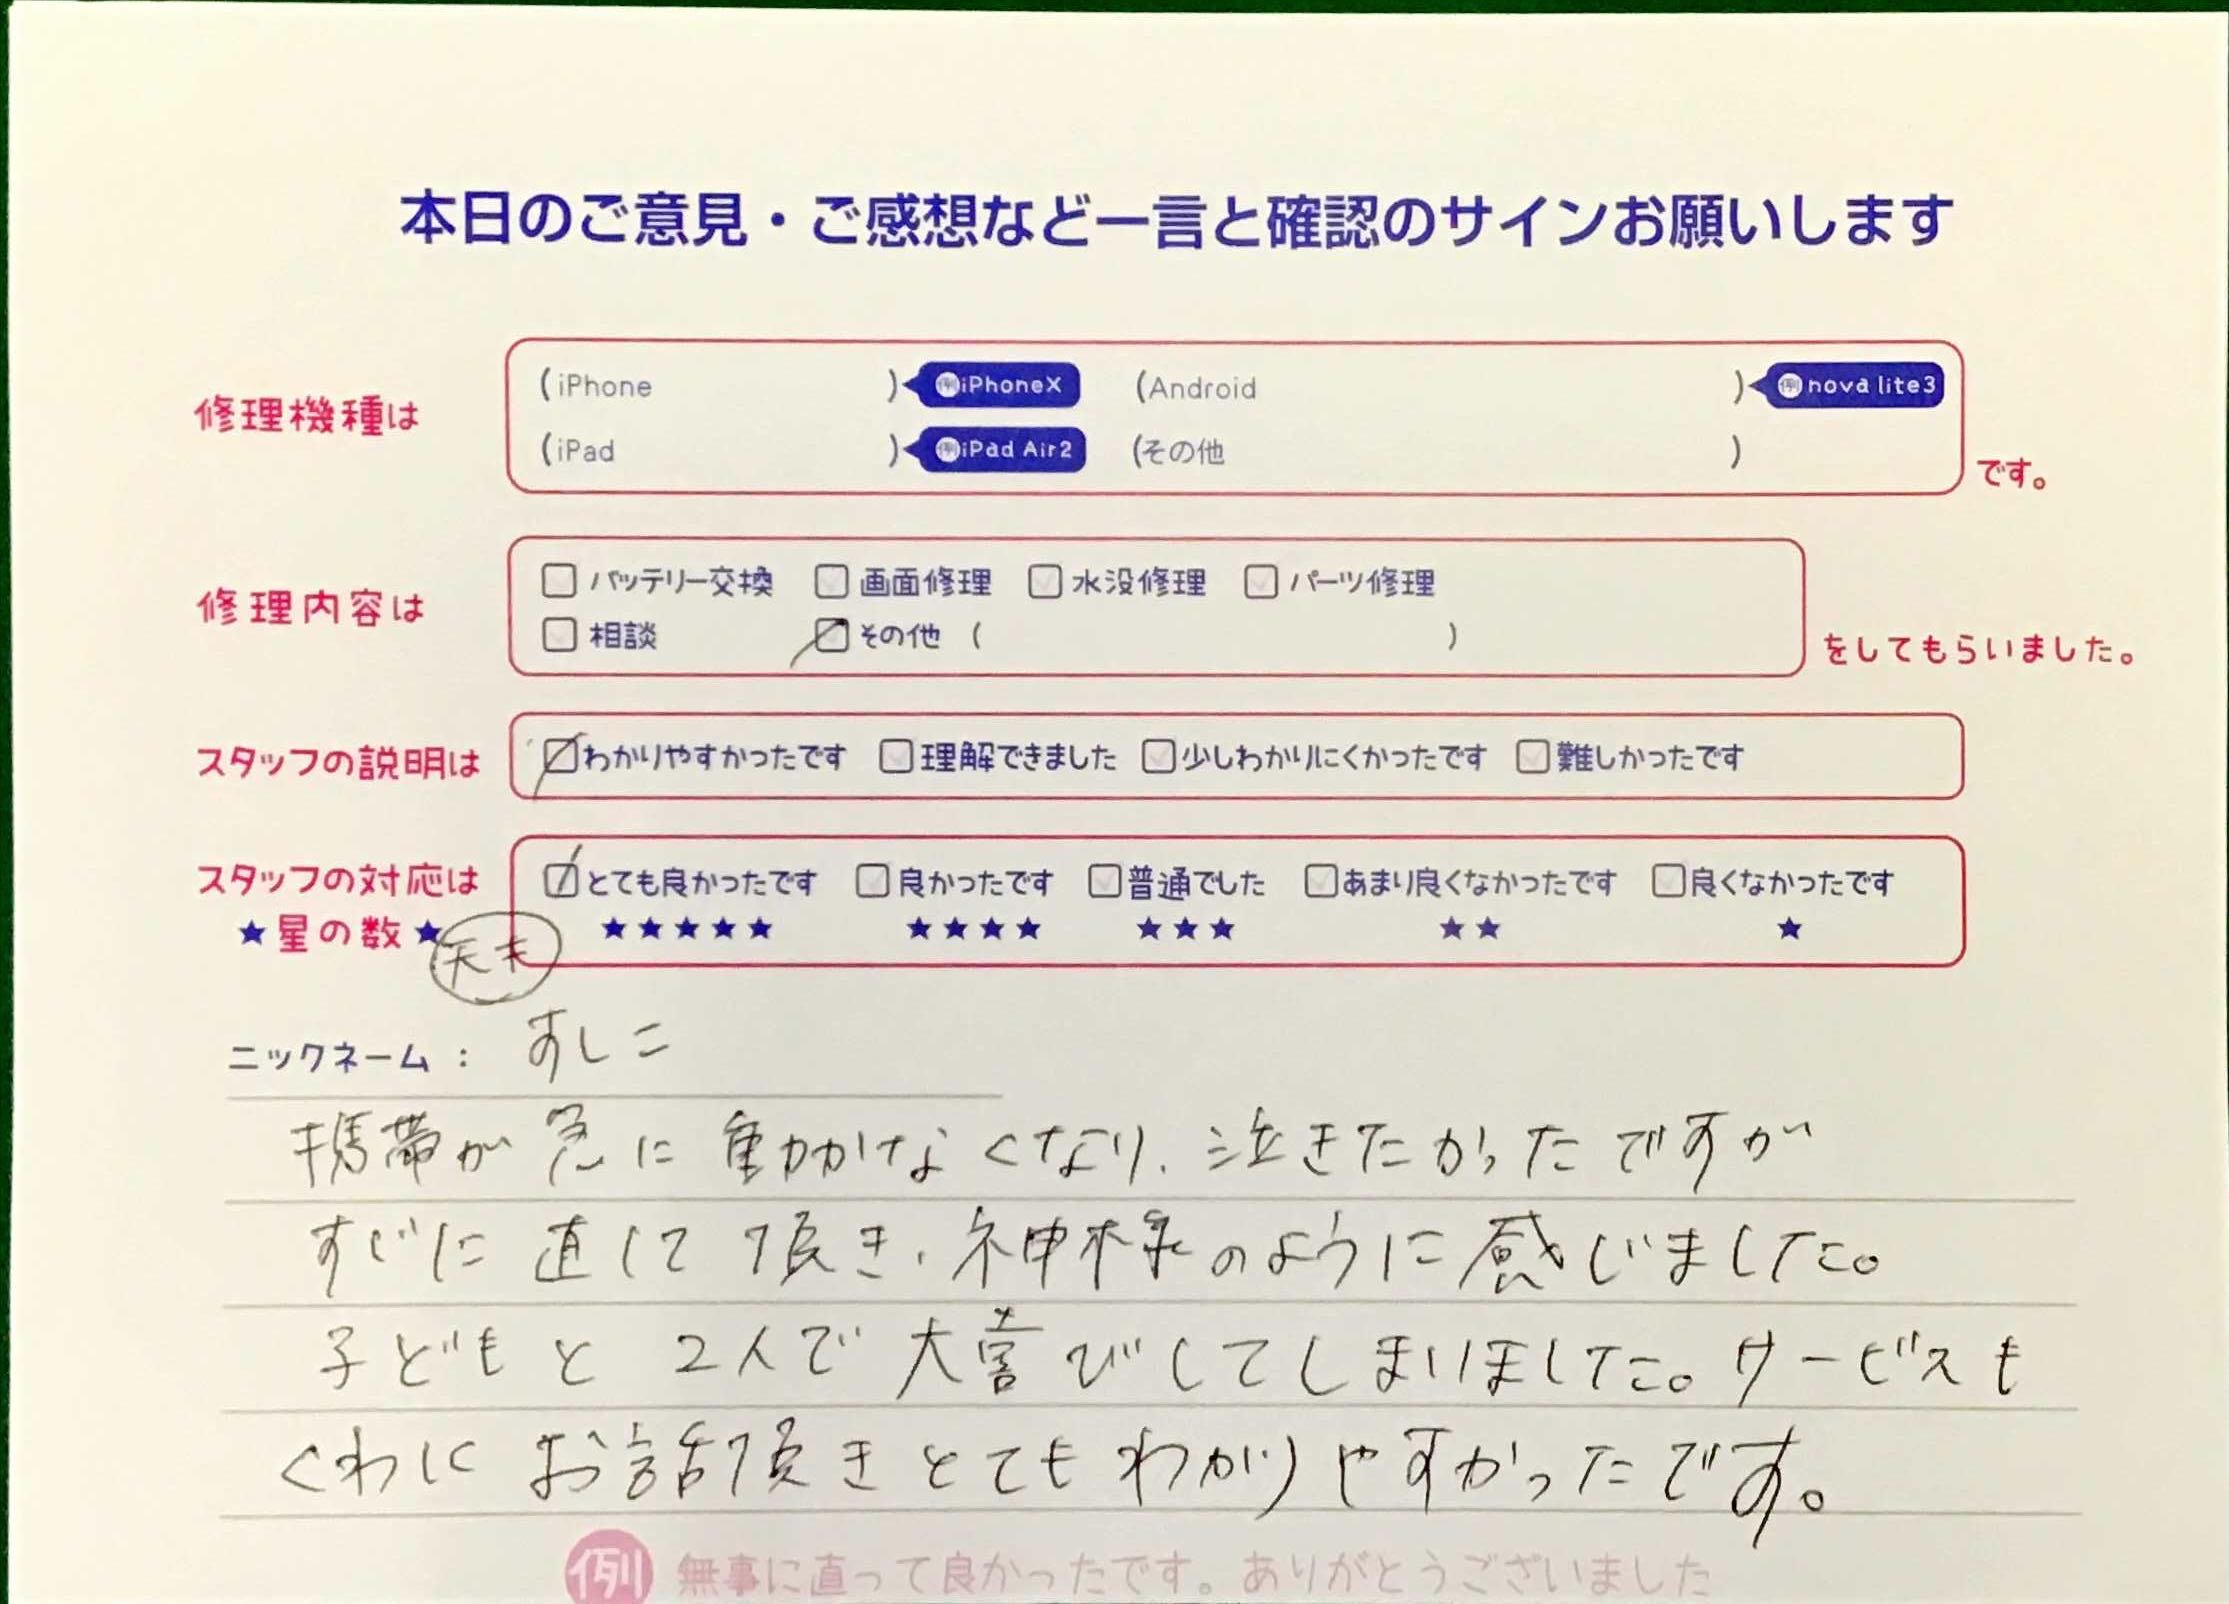 本日のご意見・ご感想など一言と確認のサインお願いします
修理機種は
(iPhone ) 例iPhoneX (Android ) 例nova lite3
(iPad ) 例iPad Air2 (その他 )
です。
修理内容は
バッテリー交換 画面修理 水没修理 パーツ修理
相談 その他 ( )
をしてもらいました。
スタッフの説明は
わかりやすかったです 理解できました 少しわかりにくかったです 難しかったです
スタッフの対応は
とても良かったです 良かったです 普通でした あまり良くなかったです 良くなかったです
★星の数★ ★★★★★ ★★★★ ★★★ ★★ ★
ニックネーム： すしこ
携帯が急に動かけなくなり、泣きたかったですが
すぐに直して頂き、神様のように感じました。
子どもと2人で大喜びしてしまいました。サービスも
くわしにお話頂きとてもわかりやすかったです。
例 無事に直って良かったです。ありがとうございました